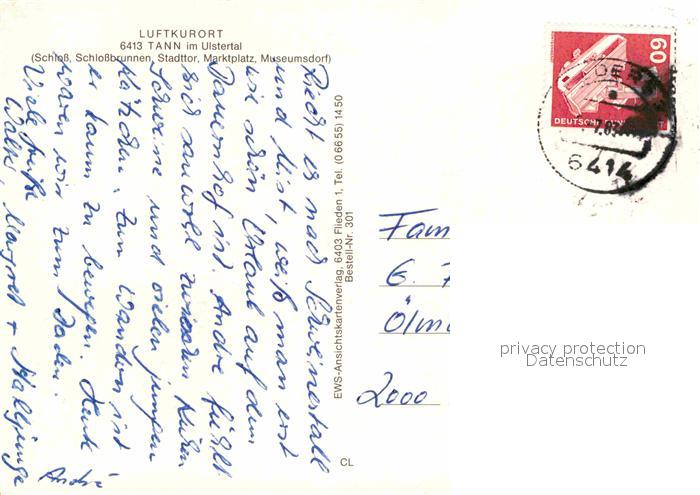 LUFTKURORT
6413 TANN im Ulstertal
(Schloß, Schloßbrunnen, Stadttor, Marktplatz, Museumsdorf)
Riecht es nach Schweinestall
und Mist, weiß man erst
wie schön Urlaub auf dem
Bauernhof ist. André fühlt
sich sauwohl zwischen Kühen
Schweine und vielen jungen
Kätzchen. Zum Wandern ist
er kaum zu bewegen. Heute
waren wir zum Baden.
Viele Grüße
Walter, Margret +
André
EWS-Ansichtskartenverlag, 6403 Flieden 1, Tel. (0 66 55) 14 50
Bestell-Nr. 301
CL
60
DEUTSCHE
6414
Fam
G.
Ölm
2000
privacy protection
Datenschutz